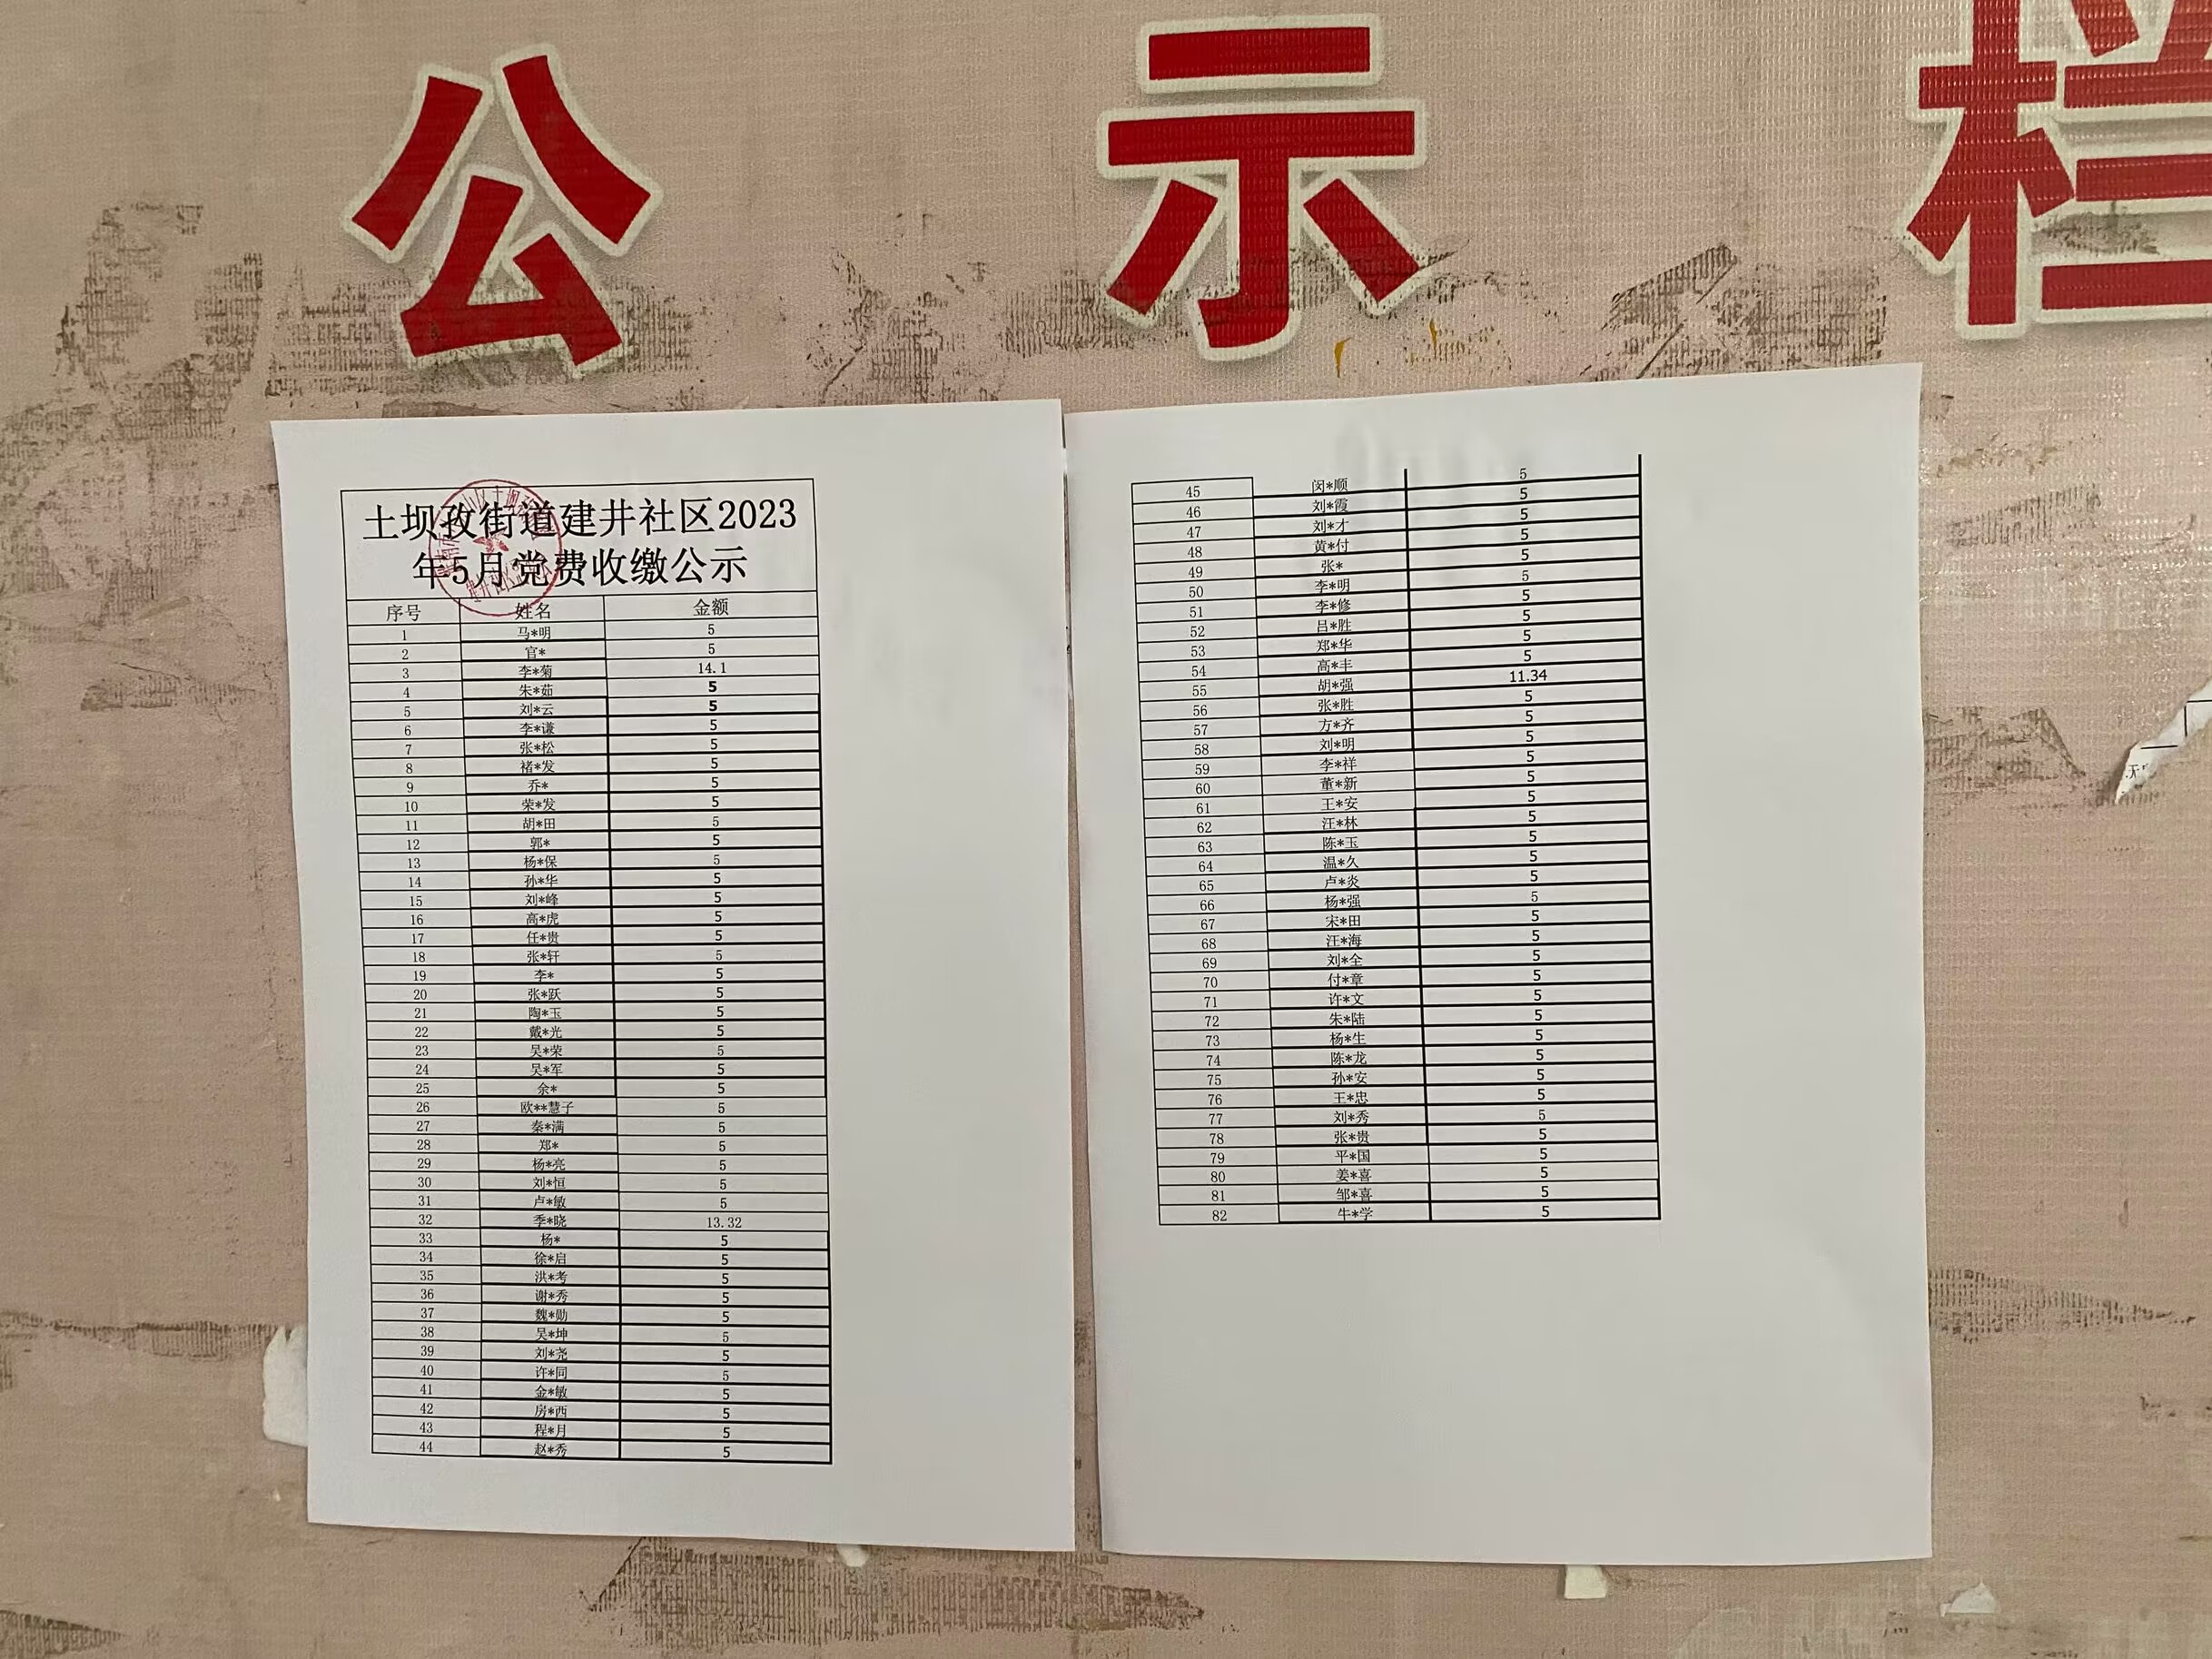 公示栏
土坝孜街道建井社区2023
年5月党费收缴公示
序号 姓名 金额
1 马*明 5
2 官* 5
3 李*菊 14.1
4 朱*茹 5
5 刘*云 5
6 李*谦 5
7 张*松 5
8 褚*发 5
9 乔* 5
10 荣*发 5
11 胡*田 5
12 郭* 5
13 杨*保 5
14 孙*华 5
15 刘*峰 5
16 高*虎 5
17 任*贵 5
18 张*轩 5
19 李* 5
20 张*跃 5
21 陶*玉 5
22 戴*光 5
23 吴*荣 5
24 吴*军 5
25 余* 5
26 欧**慧子 5
27 秦*满 5
28 郑* 5
29 杨*亮 5
30 刘*恒 5
31 卢*敏 5
32 季*晓 13.32
33 杨* 5
34 徐*启 5
35 洪*考 5
36 谢*秀 5
37 魏*勋 5
38 吴*坤 5
39 刘*尧 5
40 许*同 5
41 金*敏 5
42 房*西 5
43 程*月 5
44 赵*秀 5
45 闵*顺 5
46 刘*霞 5
47 刘*才 5
48 黄*付 5
49 张* 5
50 李*明 5
51 李*修 5
52 吕*胜 5
53 郑*华 5
54 高*丰 5
55 胡*强 11.34
56 张*胜 5
57 方*齐 5
58 刘*明 5
59 李*祥 5
60 董*新 5
61 王*安 5
62 汪*林 5
63 陈*玉 5
64 温*久 5
65 卢*炎 5
66 杨*强 5
67 宋*田 5
68 汪*海 5
69 刘*全 5
70 付*章 5
71 许*文 5
72 朱*陆 5
73 杨*生 5
74 陈*龙 5
75 孙*安 5
76 王*忠 5
77 刘*秀 5
78 张*贵 5
79 平*国 5
80 姜*喜 5
81 邹*喜 5
82 牛*学 5